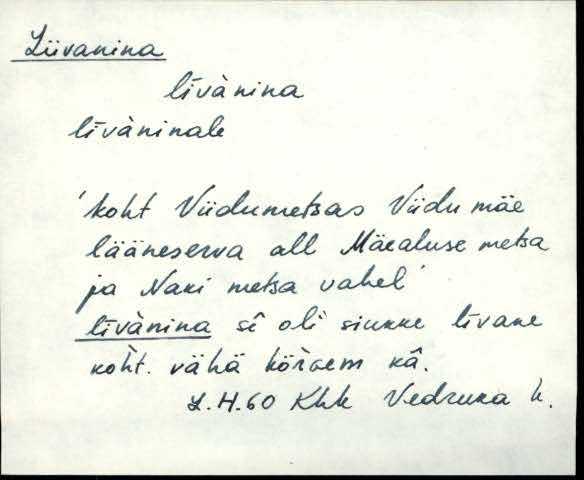 Liivanina
līvànina
līvàninale
'koht Viidumetsas Viidu mäe
lääneserva all Mäealuse metsa
ja Naki metsa vahel'
līvànina sê oli siukke līvane
koh̀t. vähä kör̀gem kâ.
L.H.60 Khk Vedruka k.